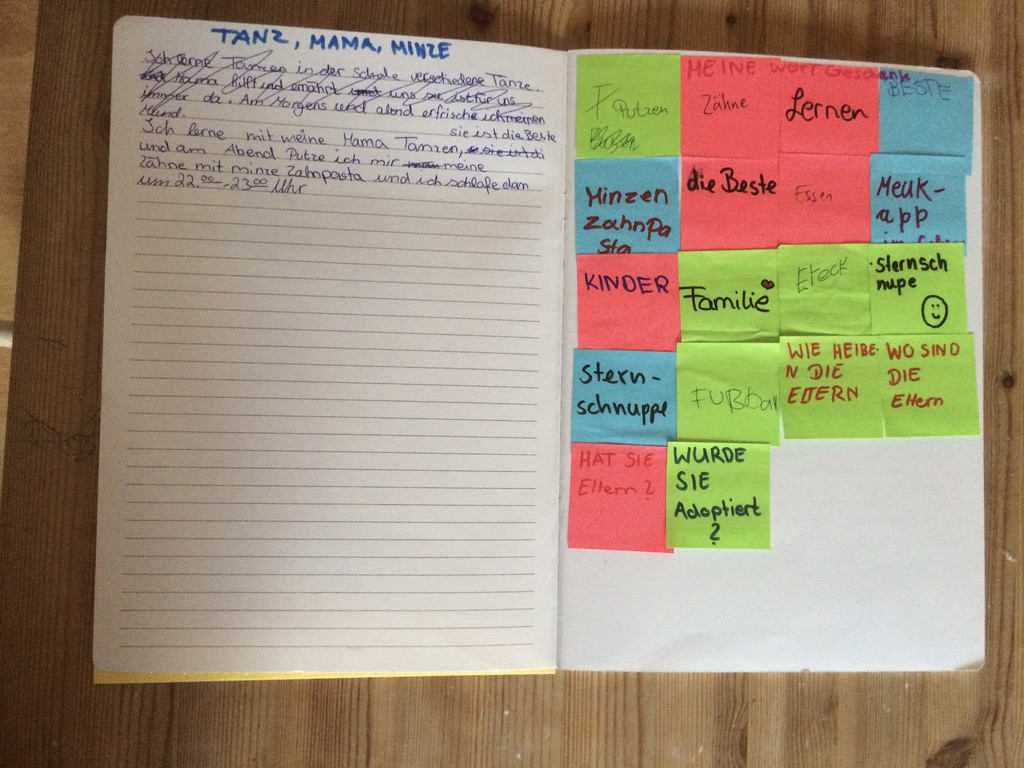 TANZ, MAMA, MINZE
Ich lerne Tanzen in der Schule verschiedene Tänze.
Mama hilft und ernährt uns sie ist für uns
immer da. Am Morgens und abend erfrische ich meinen
Mund.
sie ist die Beste
Ich lerne mit meine Mama Tanzen, sie ist di
und am Abend Putze ich mir meine
Zähne mit minze Zahnpasta und ich schlafe dan
um 22 00 - 23 00 Uhr
MEINE WORT-Geschenk
Putzen
Zähne
Lernen
BESTE
Minzen
zahnpa
sta
die Beste
Essen
Meuk-
app
KINDER
Familie
Eteck
Sternsch
nupe
Stern-
schnuppe
FUßbal
WIE HEIBE
N DIE
ElTERN
WO SIND
DIE
Eltern
HAT SIE
Eltern?
WURDE
SIE
Adoptiert
?